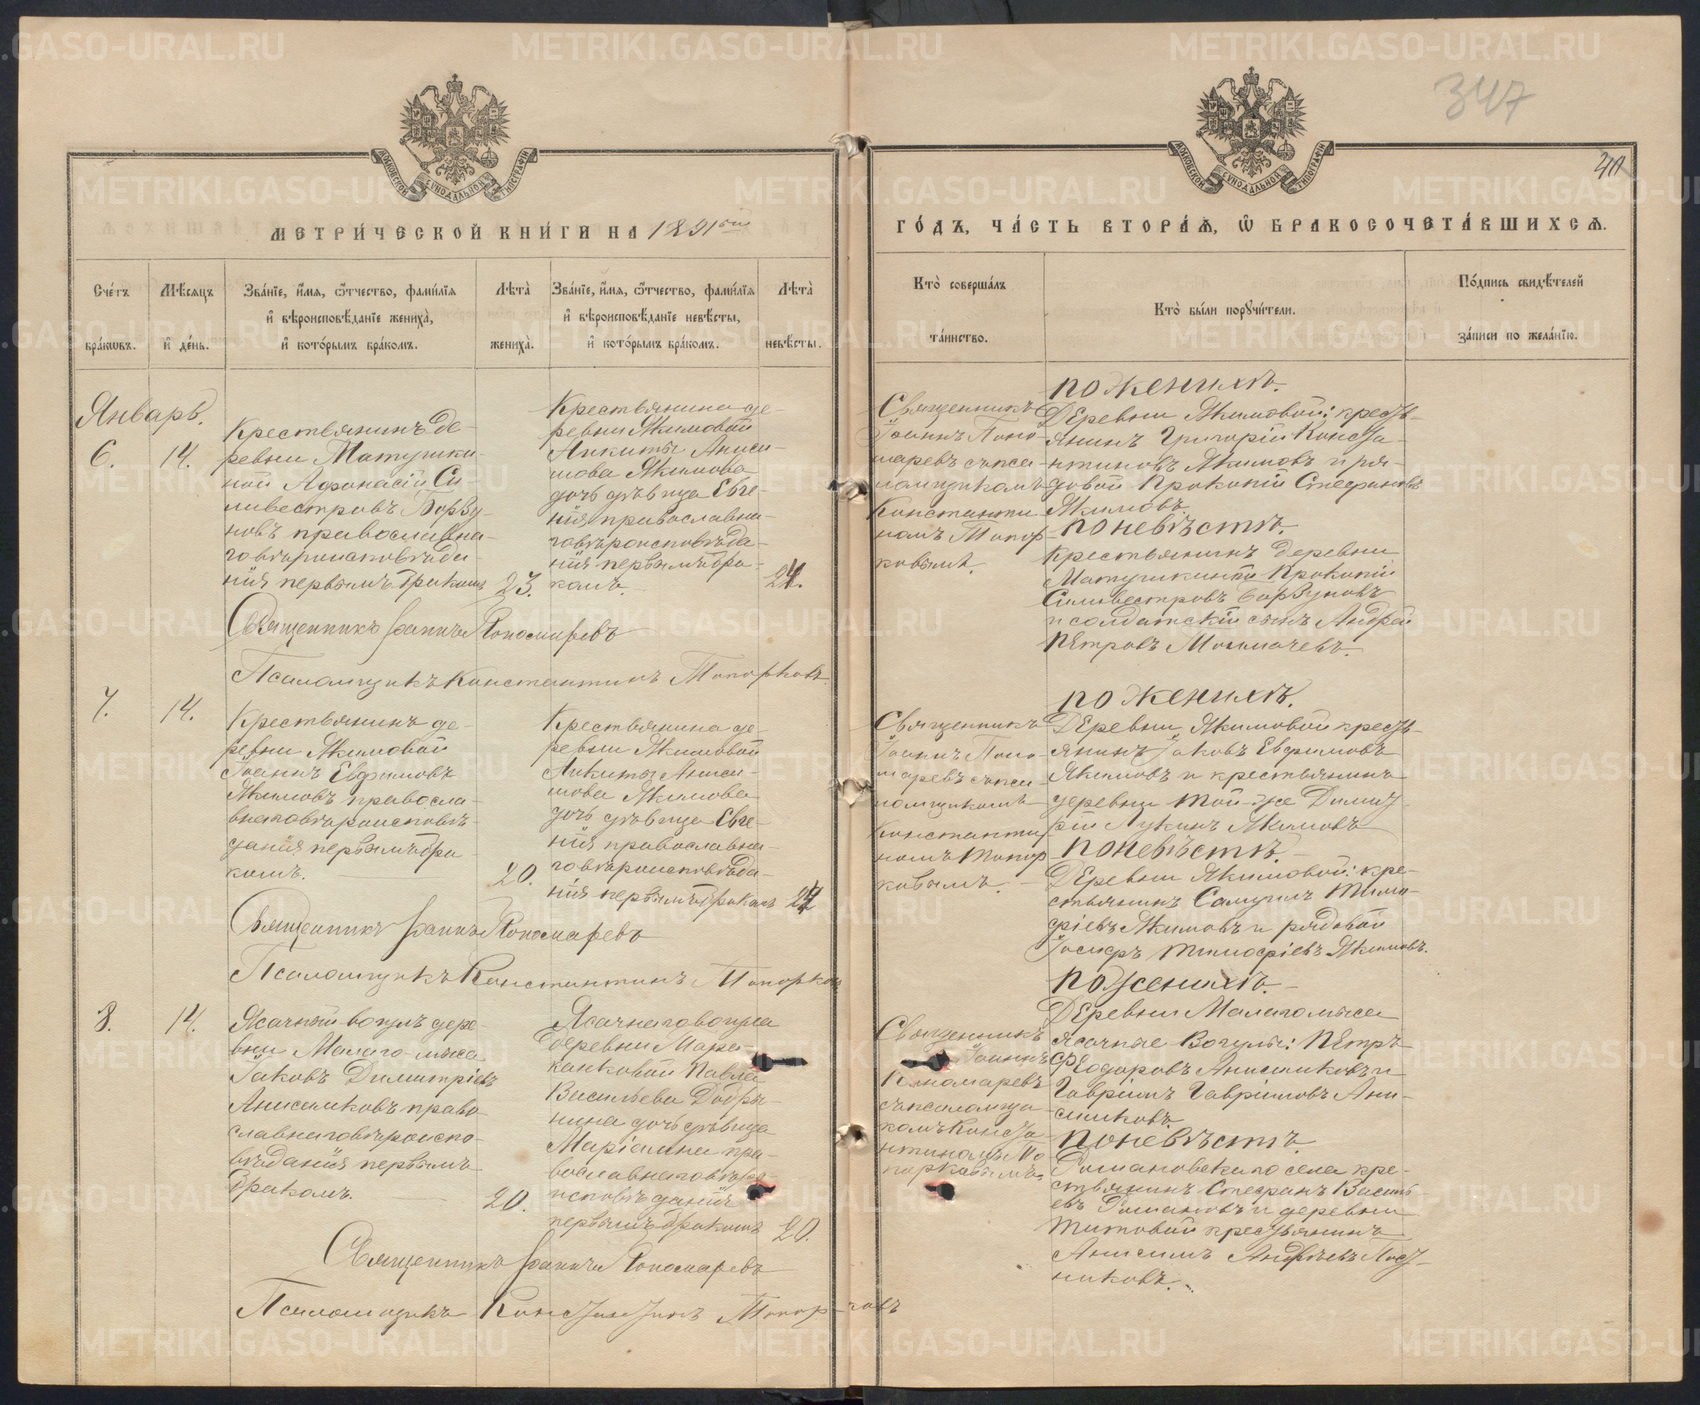 METRIKI.GASO-URAL.RU
347
40
МЕТРИ́ЧЕСКОЙ КНИ́ГИ НА 1891ый
ГО́ДЪ, ЧА́СТЬ ВТОРА́Ѧ, Ѽ БРАКОСОЧЕТА́ВШИХСѦ.
Сче́тъ бра́кѡвъ.
Мѣ́сяцъ и҆ де́нь.
Зва́нїе, и҆́мѧ, ѻ҆́тчество, фами́лїѧ
и҆ вѣроисповѣ́данїе жениха̀,
и҆ кото́рымъ бра́комъ.
Лѣта̀
жениха̀.
Зва́нїе, и҆́мѧ, ѻ҆́тчество, фами́лїѧ
и҆ вѣроисповѣ́данїе невѣ́сты,
и҆ кото́рымъ бра́комъ.
Лѣта̀
невѣ́сты.
Кто̀ соверша́лъ
та́инство.
Кто̀ бы́ли порꙋчи́тели.
По́дпись свидѣ́телей
за́писи по жела́нїю.
Январь.
6.
14.
Крестьянинъ де-
ревни Матушки-
ной Афонасій Си-
ливестровъ Борзу-
новъ православна-
го вѣроисповѣда-
нія первымъ бракомъ
23.
Крестьянина де-
ревни Якимовой
Никиты Аниси-
мова Якимова
дочь дѣвица Евге-
нія православна-
го вѣроисповѣда-
нія первымъ бра-
комъ.
24.
Священникъ
Іоаннъ Поно-
маревъ съ пса-
ломщикомъ
Константи-
номъ Топор-
ковымъ.
по женихѣ.
Деревни Якимовой: кресть-
янинъ Григорій Конста-
нтиновъ Якимовъ и ря-
довой Прокопій Стефановъ
Якимовъ.
по невѣстѣ.
Крестьянинъ деревни
Матушкиной Прокопій
Силивестровъ Борзуновъ
и солдатскій сынъ Андрей
Петровъ
Священникъ Іоаннъ Пономаревъ
Псаломщикъ Константинъ Топорковъ
7.
14.
Крестьянинъ де-
ревни Якимовой
Іоаннъ Евфимовъ
Якимовъ правосла-
внаго вѣроисповѣ-
данія первымъ бра-
комъ.
20.
Крестьянина де-
ревни Якимовой
Никиты Аниси-
мова Якимова
дочь дѣвица Евге-
нія православна-
го вѣроисповѣда-
нія первымъ бракомъ
Священникъ
Іоаннъ Поно-
маревъ съ пса-
ломщикомъ
Константи-
номъ Топор-
ковымъ.
по женихѣ.
Деревни Якимовой кресть-
янинъ Іаковъ Евфимовъ
Якимовъ и крестьянинъ
деревни той-же Димит-
рій Лукинъ Якимовъ
по невѣстѣ.
Деревни Якимовой: кре-
стьянинъ Самуилъ Тимо-
фіевъ Якимовъ и рядовой
Іосифъ Тимофіевъ Якимовъ.
Священникъ Іоаннъ Пономаревъ
Псаломщикъ Константинъ Топорковъ
8.
14.
Ясачный вогулъ дере-
вни Малаго-мыса
Іаковъ Димитріевъ
Анисимковъ право-
славнаго вѣроиспо-
вѣданія первымъ
бракомъ.
20.
Ясачнаго вогула
деревни Мара-
канковой Павла
Васильева
дочь дѣвица
Маріамна пра-
вославнаго вѣро-
исповѣданія
первымъ бракомъ
20.
Священникъ
Іоаннъ
Пономаревъ
съ псаломщи-
комъ Конста-
нтиномъ То-
порковымъ.
по женихѣ.
Деревни Малаго мыса
ясачные Вогулы: Петръ
Феодоровъ Анисимковъ и
Гавріилъ Гавріиловъ Ани-
симковъ.
по невѣстѣ.
Романовскаго села кре-
стьянинъ Стефанъ Василь-
евъ Романовъ и деревни
Титовой крестьянинъ
Анисимъ Андреевъ Пост-
никовъ.
Священникъ Іоаннъ Пономаревъ
Псаломщикъ Константинъ Топорковъ